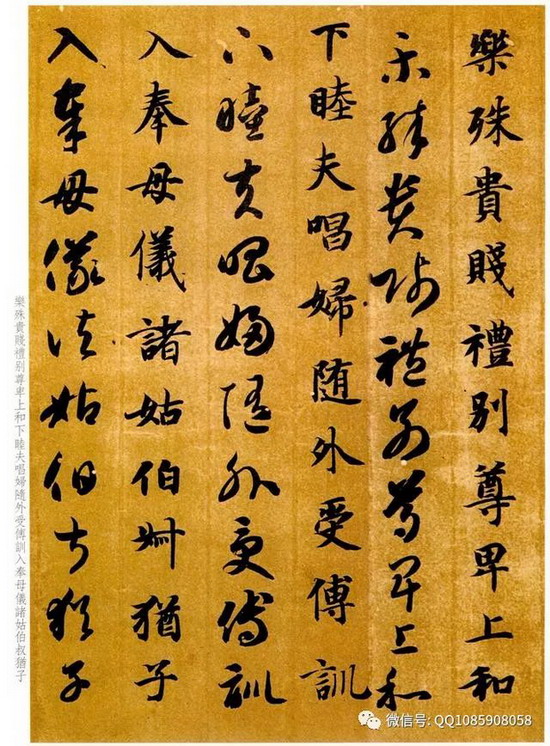 樂殊貴賤禮别尊卑上和
樂殊貴賤禮别尊卑上和
下睦夫唱婦随外受傅訓
下睦夫唱婦随外受傅訓
入奉母儀諸姑伯叔猶子
入奉母儀諸姑伯叔猶子
樂殊貴賤禮别尊卑上和下睦夫唱婦隨外受傅訓入奉母儀諸姑伯叔猶子
微信号: QQ1085908058